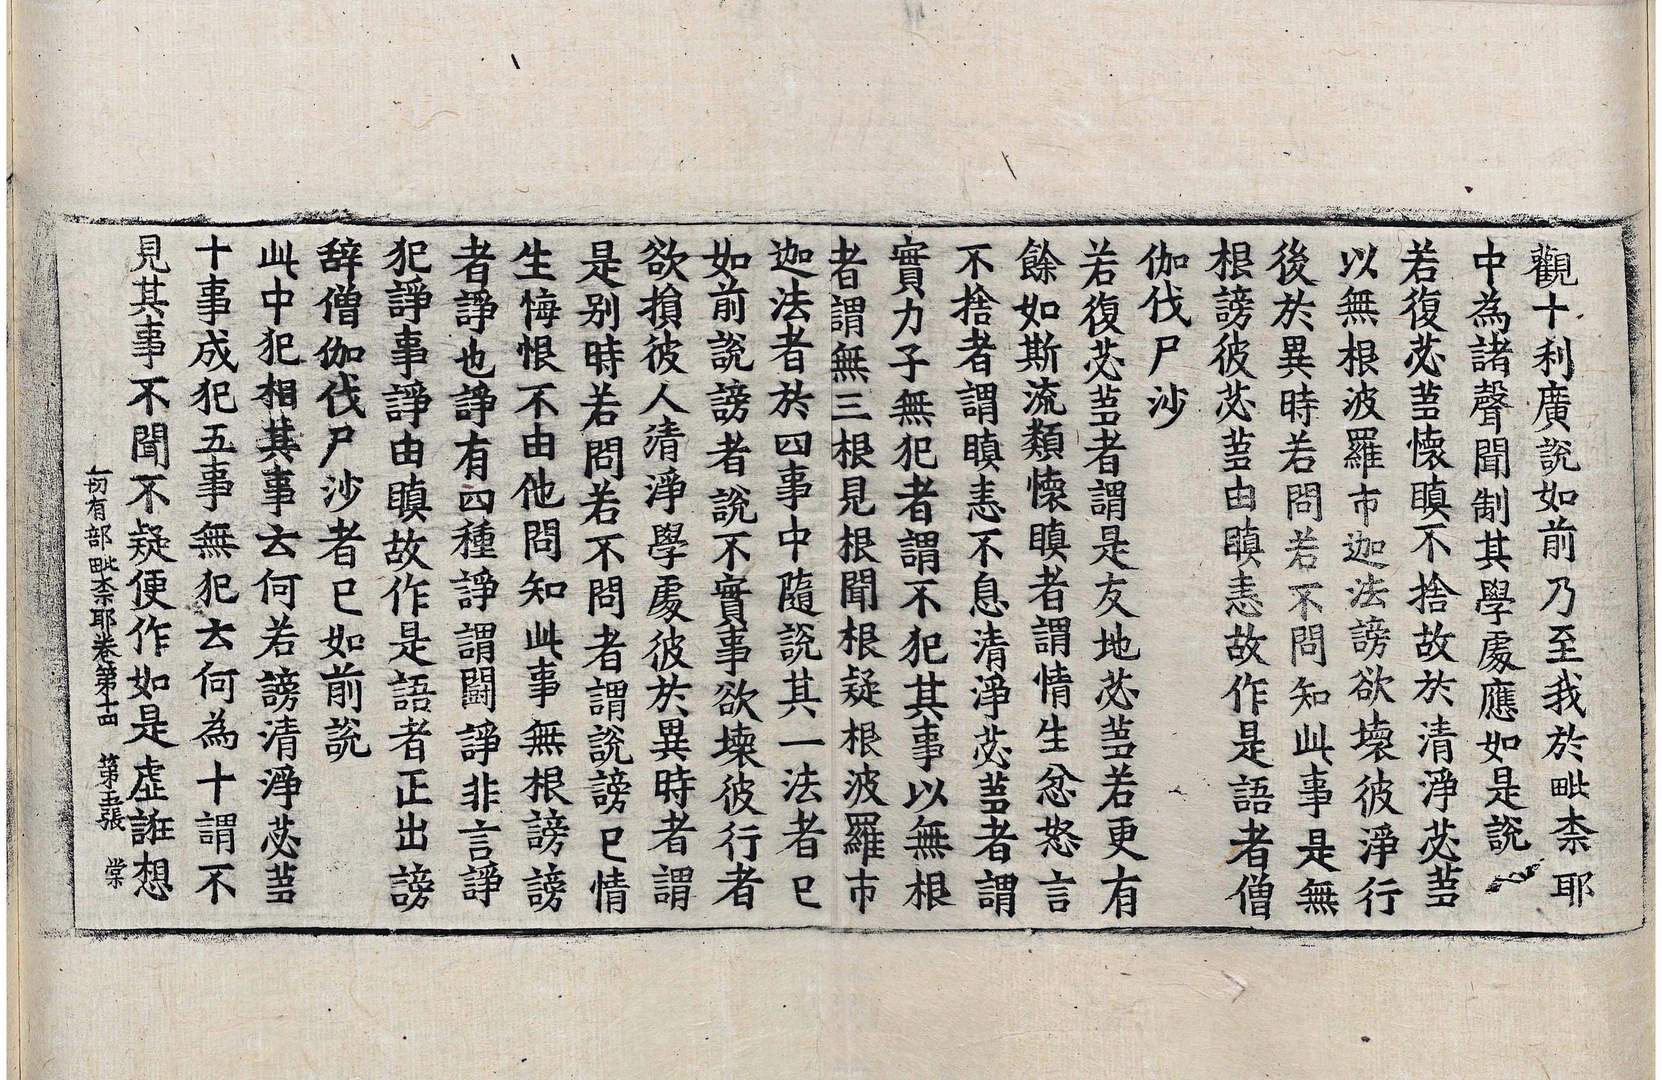 觀十利廣說如前乃至我於毗柰耶
中為諸聲聞制其學處應如是說
若復苾芻懷瞋不捨故於清淨苾芻
以無根波羅市迦法謗欲壞彼淨行
後於異時若問若不問知此事是無
根謗彼苾芻由瞋恚故作是語者僧
伽伐尸沙
若復苾芻者謂是友地苾芻若更有
餘如斯流類懷瞋者謂情生忿怒言
不捨者謂瞋恚不息清淨苾芻者謂
實力子無犯者謂不犯其事以無根
者謂無三根見根聞根疑根波羅市
迦法者於四事中隨說其一法者已
如前說謗者說不實事欲壞彼行者
欲損彼人清淨學處彼於異時者謂
是別時若問若不問者謂說謗已情
生悔恨不由他問知此事無根謗謗
者諍也諍有四種諍謂鬪諍非言諍
犯諍事諍由瞋故作是語者正出謗
辞僧伽伐尸沙者已如前說
此中犯相其事云何若謗清淨苾芻
十事成犯五事無犯云何為十謂不
見其事不聞不疑便作如是虛誑想
一切有部毗柰耶卷第十四 第五張 棠